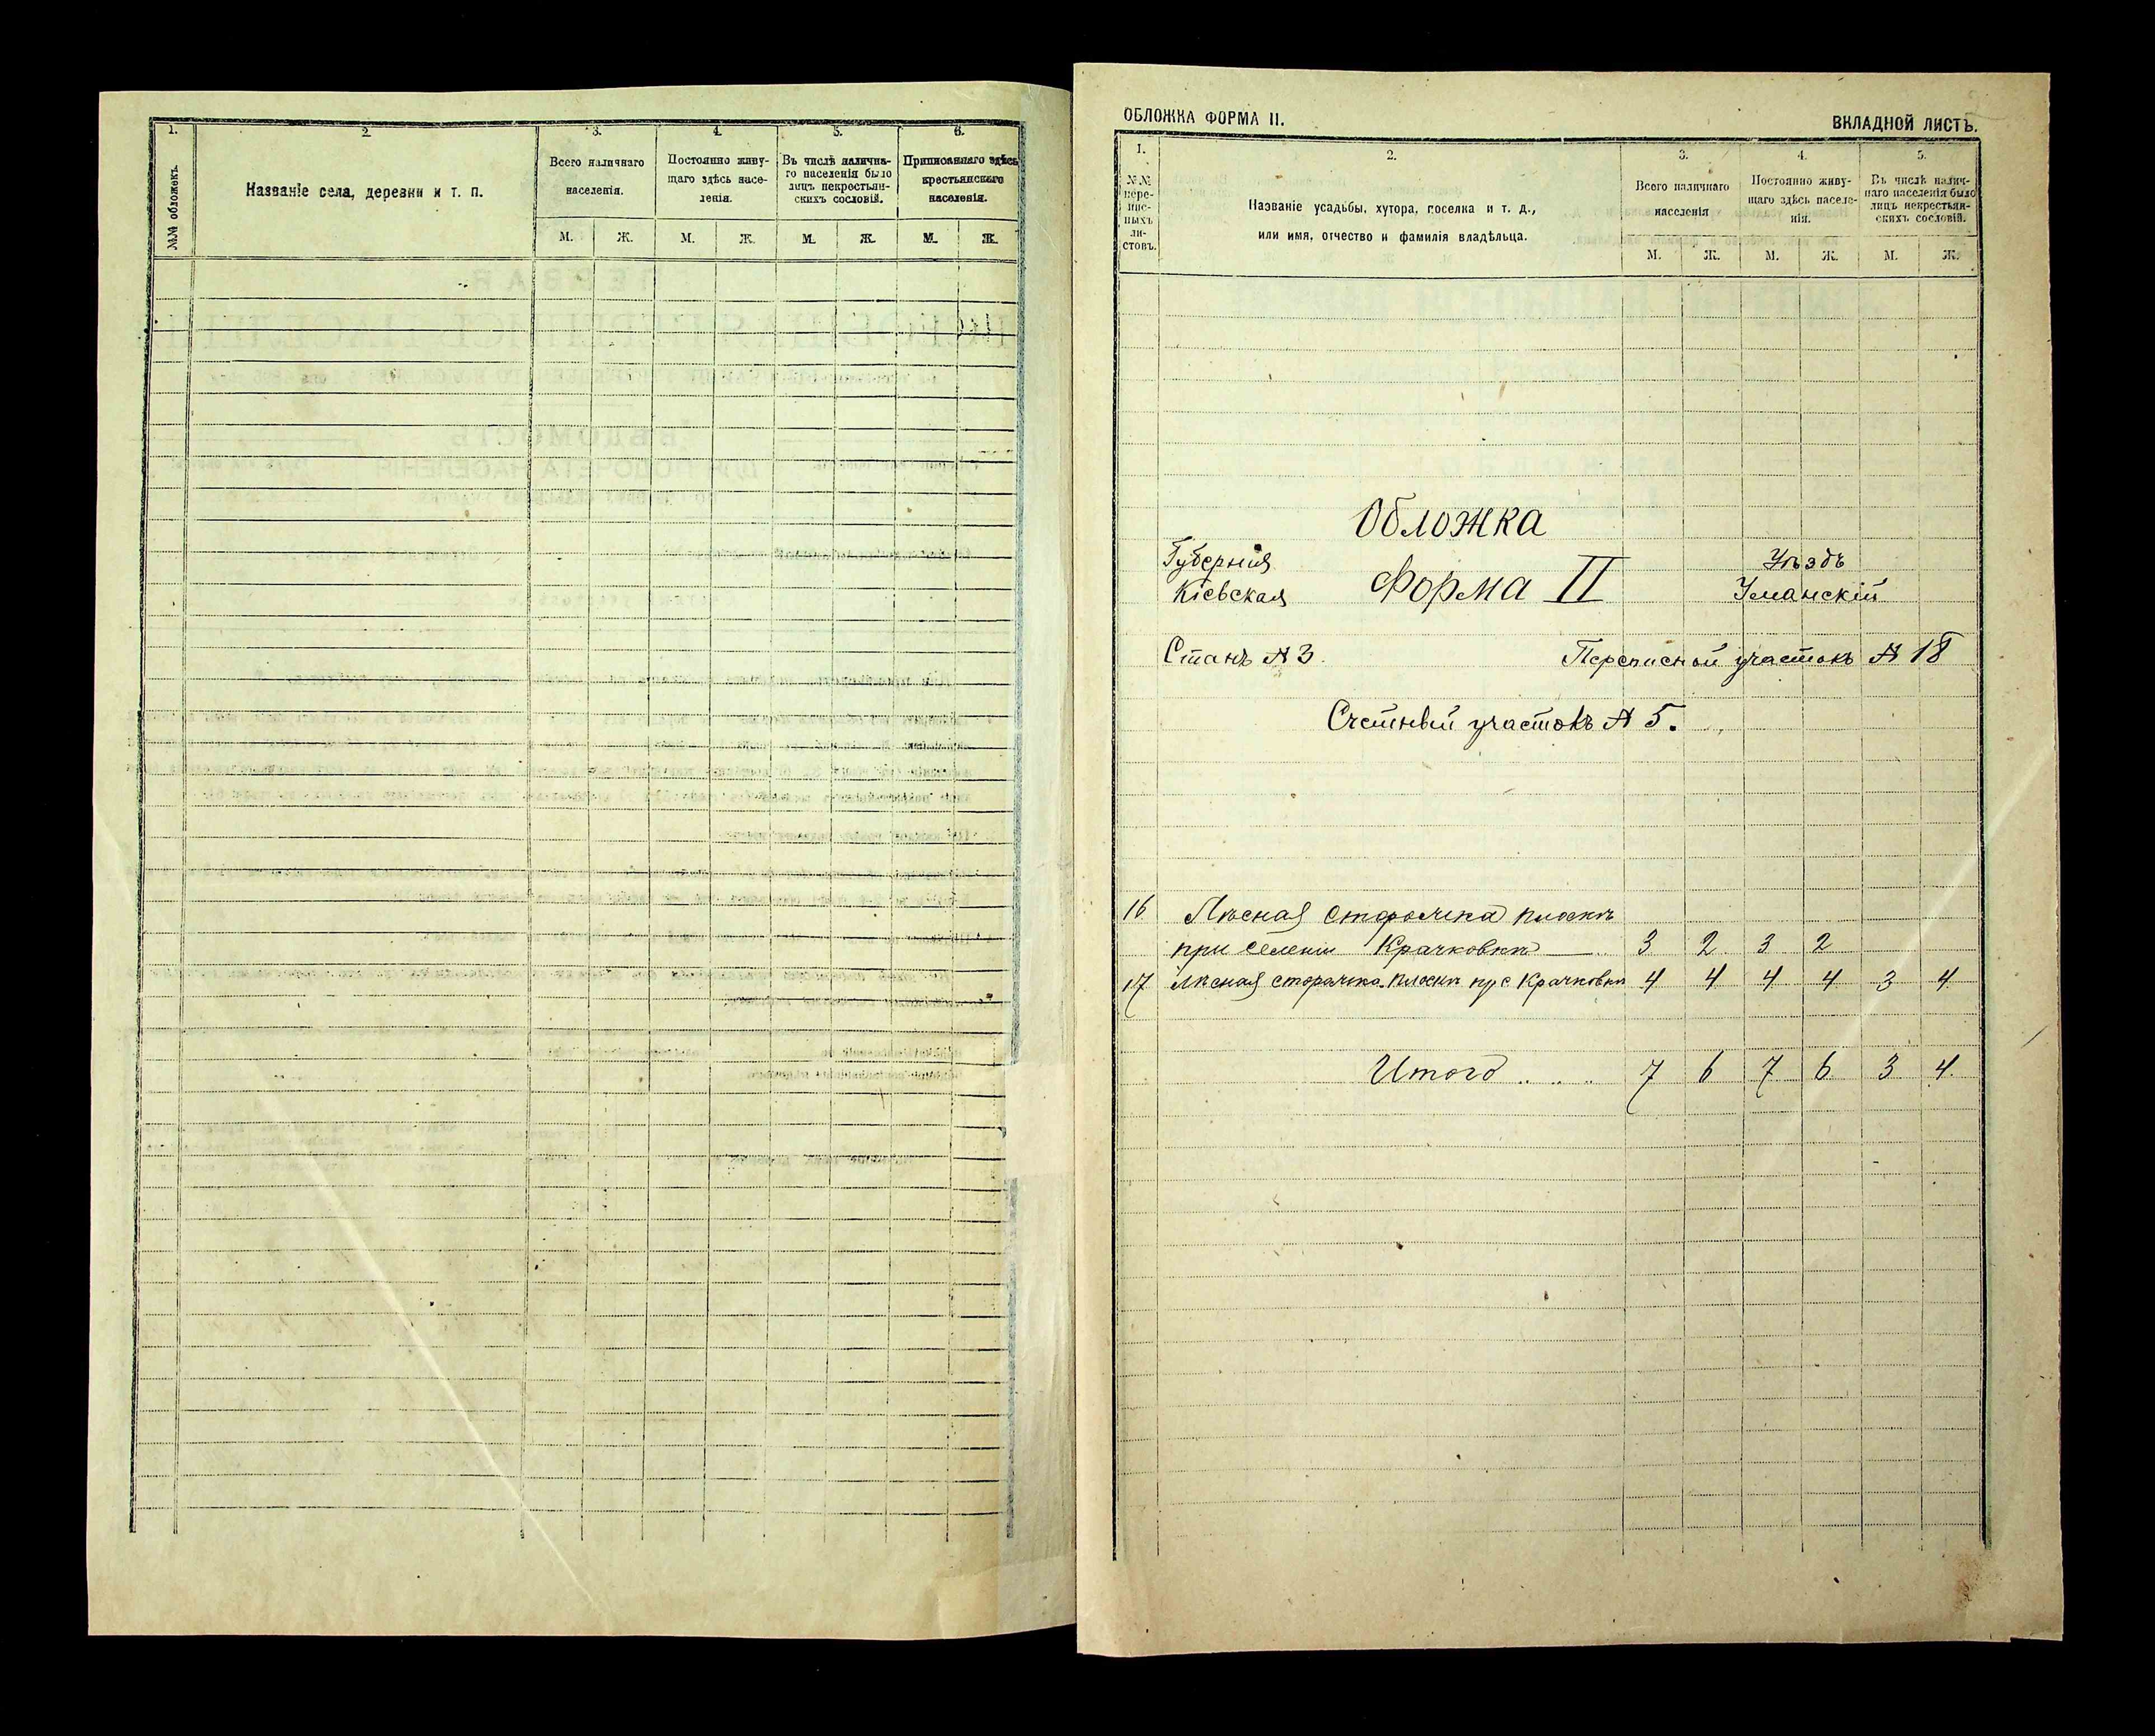 1.
2.
3.
4.
5.
6.
№№ обложекъ.
Названіе села, деревни и т. п.
Всего наличнаго
населенія.
Постоянно живу-
щаго здѣсь насе-
ленія.
Въ числѣ налична-
го населенія было
лицъ некрестьян-
скихъ сословій.
Приписаннаго здѣсь
крестьянскаго
населенія.
М. Ж. М. Ж. М. Ж. М. Ж.
ОБЛОЖКА ФОРМА II.
ВКЛАДНОЙ ЛИСТЪ.
1.
2.
3.
4.
5.
№№
пере-
пис-
ныхъ
ли-
стовъ.
Названіе усадьбы, хутора, поселка и т. д.,
или имя, отчество и фамилія владѣльца.
Всего наличнаго
населенія
Постоянно живу-
щаго здѣсь населе-
нія.
Въ числѣ налич-
наго населенія было
лицъ некрестьян-
скихъ сословій.
М. Ж. М. Ж. М. Ж.
Обложка
Губернія
Кіевская
Форма II
Уѣздъ
Уманскій
Станъ № 3.
Переписной участокъ № 18
Счетный участокъ № 5.
16 Лѣсная сторожка
при селеніи Крачковкѣ 3 2 3 2
17 Лѣсная сторожка пр с Крачковкѣ 4 4 4 4 3 4
Итого . . . 7 6 7 6 3 4.